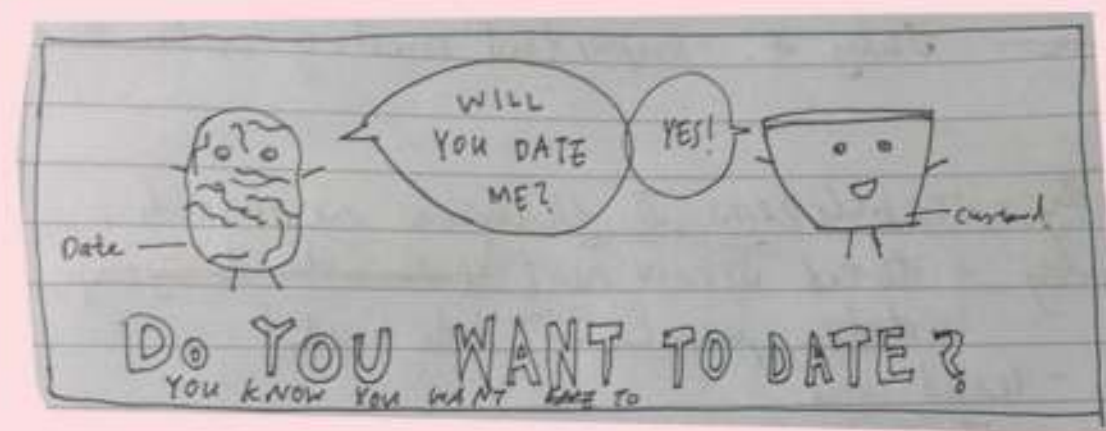 WILL
YOU DATE
ME?
YES!
Date
Custard
DO YOU WANT TO DATE?
YOU KNOW YOU WANT TO